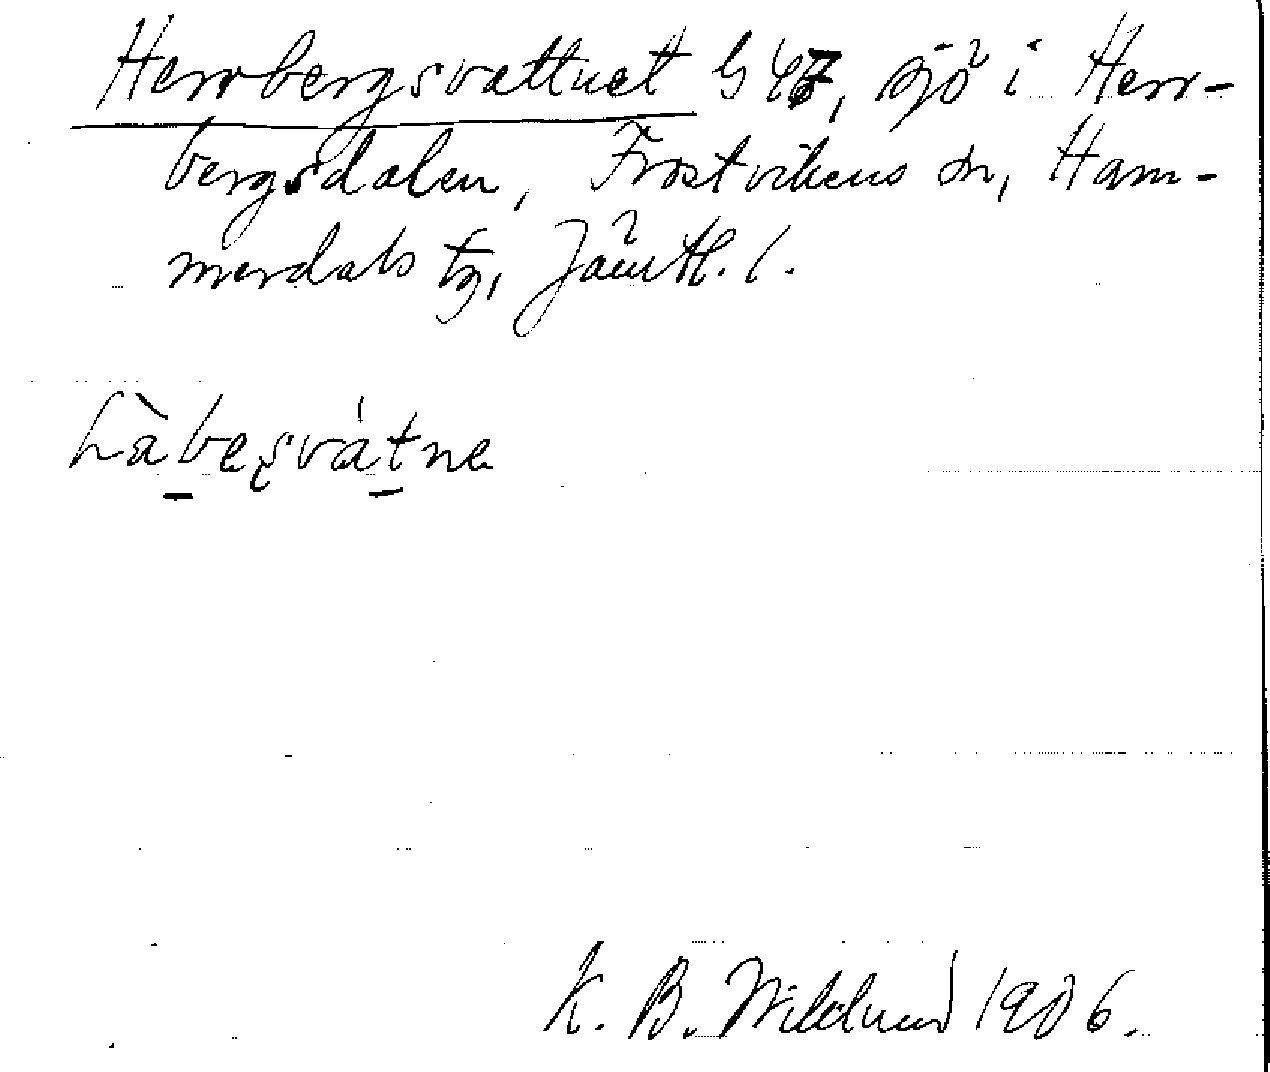 Herrbergsvattnet G 47, sjö i Herr-
bergsdalen, Frostvikens sn, Ham-
merdals tg, Jämtl. l.
hàbesvátne
K. B. Wiklund 1906.